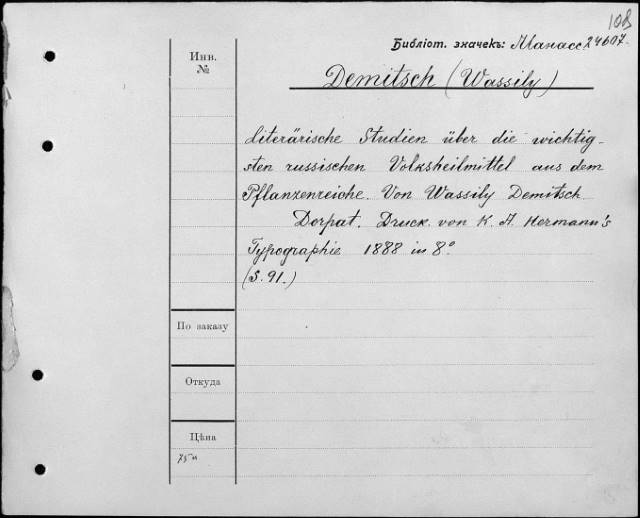 108
Библіот. значекъ: Манасс 24607.
Инв.
№
Demitsch (Wassily)
Literärische Studien über die wichtig-
sten russischen Volksheilmittel aus dem
Pflanzenreiche. Von Wassily Demitsch
Dorpat. Druck. von K. A. Hermann's
Typographie 1888 in 8°
(S. 91.)
По заказу
Откуда
Цѣна